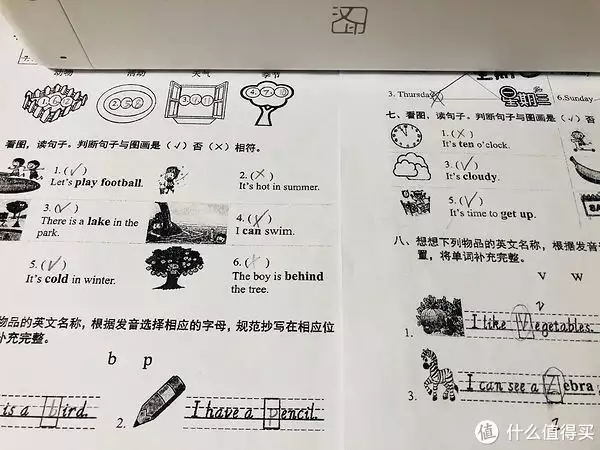 汉印
动物 活动 天气 季节
看图，读句子。判断句子与图画是（√）否（×）相符。
1. (√)
Let's play football.
2. (×)
It's hot in summer.
3. (√)
There is a lake in the
park.
4. (√)
I can swim.
5. (√)
It's cold in winter.
6. (×)
The boy is behind
the tree.
物品的英文名称，根据发音选择相应的字母，规范抄写在相应位
补充完整。
b p
is a bird.
2. I have a pencil.
3. Thursday
星期三
6.Sunday
七、看图，读句子。判断句子与图画是（√）否
1. (×)
It's ten o'clock.
3. (√)
It's cloudy.
5. (√)
It's time to get up.
八、想想下列物品的英文名称，根据发音
置，将单词补充完整。
v w
v
1. I like Vegetables.
3. I can see a Zebra
值 什么值得买